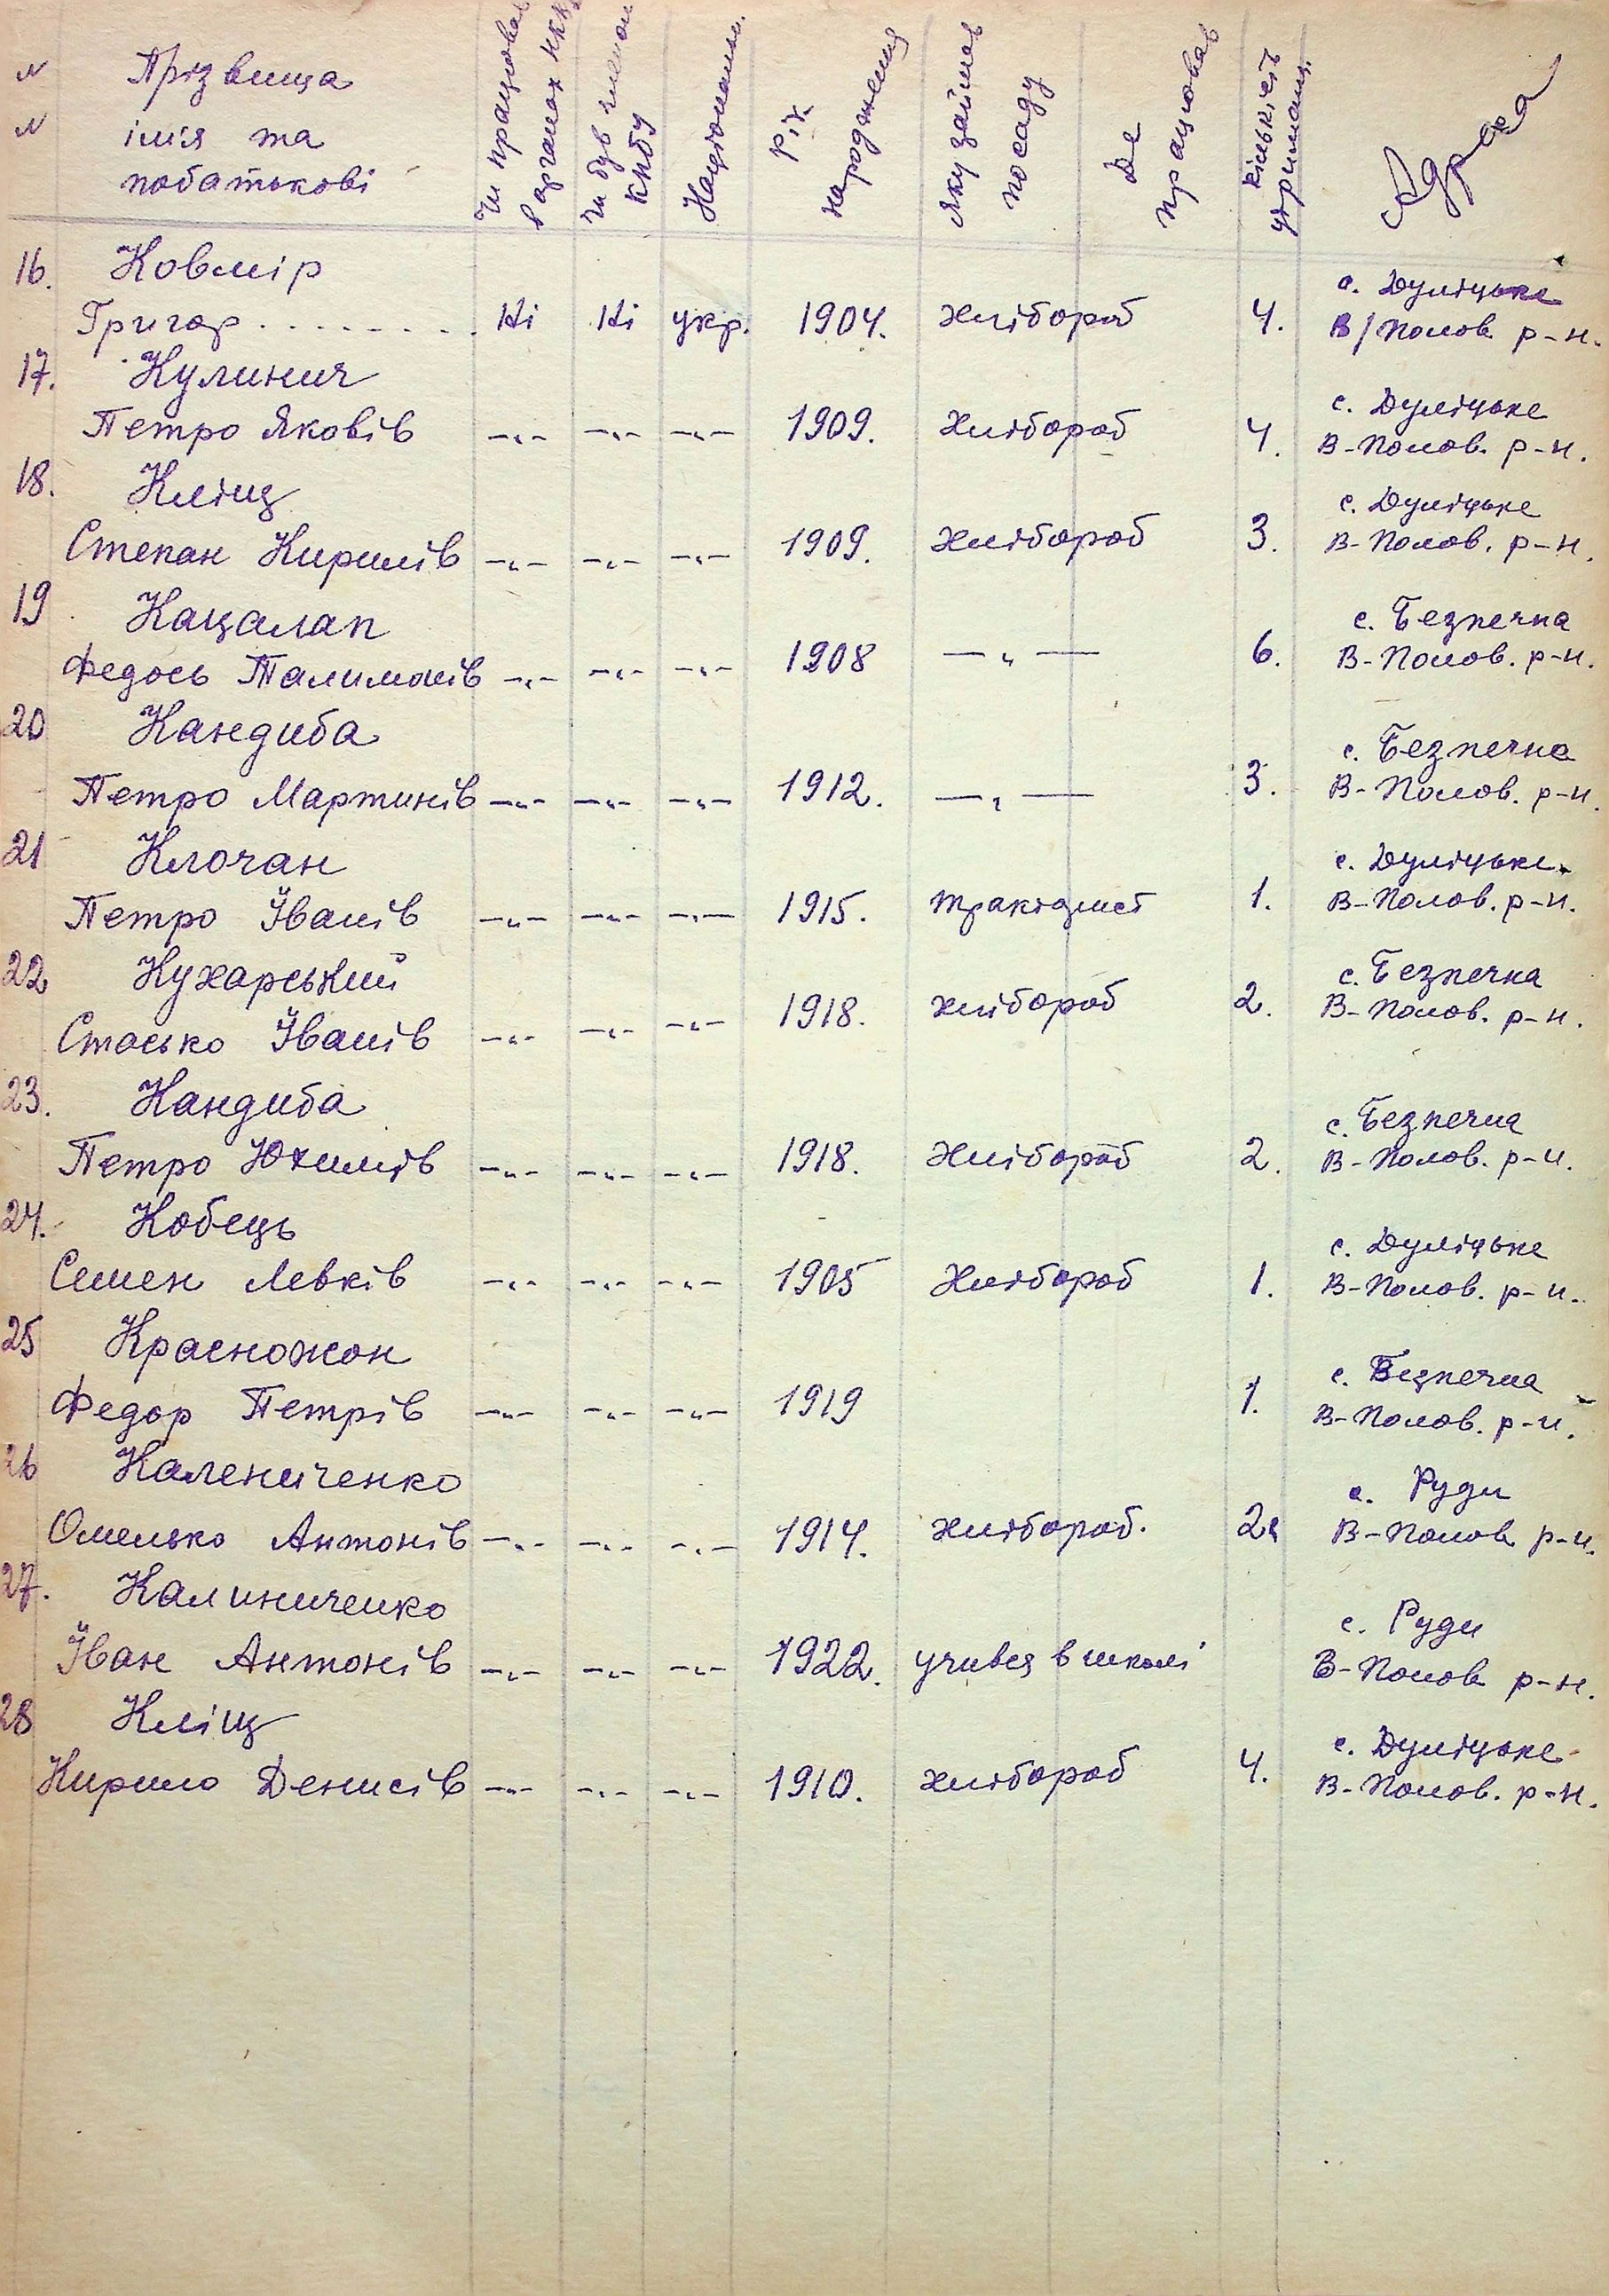 № Прізвища
№ імʼя та
побатькові
Чи працював
в органах НКВД
Чи був членом
КПбУ
Національн.
Рік
народження
Яку займав
посаду
Де
працював
кількість
утриманц.
Адреса
16. Ковмір с. Дуліцьке
Григор . . . . . . . . . Ні Ні укр. 1904. хлібороб 4. В/Полов р-н.
17. Кулинич с. Дуліцьке
Петро Яковів -„- -„- -„- 1909. Хлібороб 4. В-Полов. р-н.
18. Кліщ с. Дуліцьке
Степан Кирилів -„- -„- -„- 1909. Хлібороб 3. В-Полов. р-н.
19. Кацалап с. Безпечна
Федось Талимонів -„- -„- -„- 1908 — „ — 6. В-Полов. р-н.
20 Кандиба с. Безпечна
Петро Мартинів -„- -„- -„- 1912. — „ — 3. В-Полов. р-н.
21 Клочан с. Дуліцьке.
Петро Іванів -„- -„- -„- 1915. тракторист 1. В-Полов. р-н.
22 Кухарський с. Безпечна
Стасько Іванів -„- -„- -„- 1918. хлібороб 2. В-Полов. р-н.
23. Кандиба с. Безпечна
Петро Юхимів -„- -„- -„- 1918. Хлібороб 2. В-Полов. р-н.
24. Кобець с. Дуліцьке
Семен Левків -„- -„- -„- 1905 Хлібороб 1. В-Полов. р-н.
25 Красножон с. Безпечна
Федор Петрів -„- -„- -„- 1919 1. В-Полов. р-н.
26 Калениченко с. Руди
Омелько Антонів -„- -„- -„- 1914. хлібороб. 2 В-Полов р-н.
27. Калиниченко с. Руди
Іван Антонів -„- -„- -„- 1922. учився в школі В-Полов р-н.
28 Кліщ с. Дуліцьке
Кирило Денисів -„- -„- -„- 1910. хлібороб 4. В-Полов. р-н.